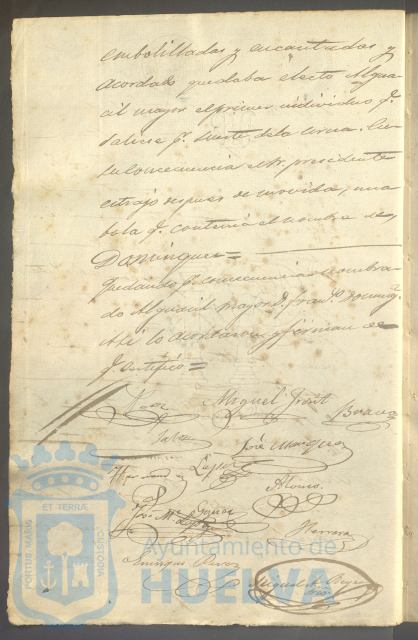 embolilladas y encantaradas y
acordado quedaba electo Algua
cil mayor el primer individuo q.
saliese p. suerte de la urna. En
su consecuencia el Sr. presidente
estrajo despues de movida, una
bola q. contenia el nombre de
Dominguez=
Quedando p. consecuencia nombra
do Alguacil mayor D. Fran.co Doming.z
Asi lo acordaron y firman de
q. certifico=
Miguel
Bravo
José
Lopez
Alonso
José M.
Herrera
Enrique
Miguel
PORTUS MARIS
ET TERRÆ
CUSTODIA
Ayuntamiento de
HUELVA